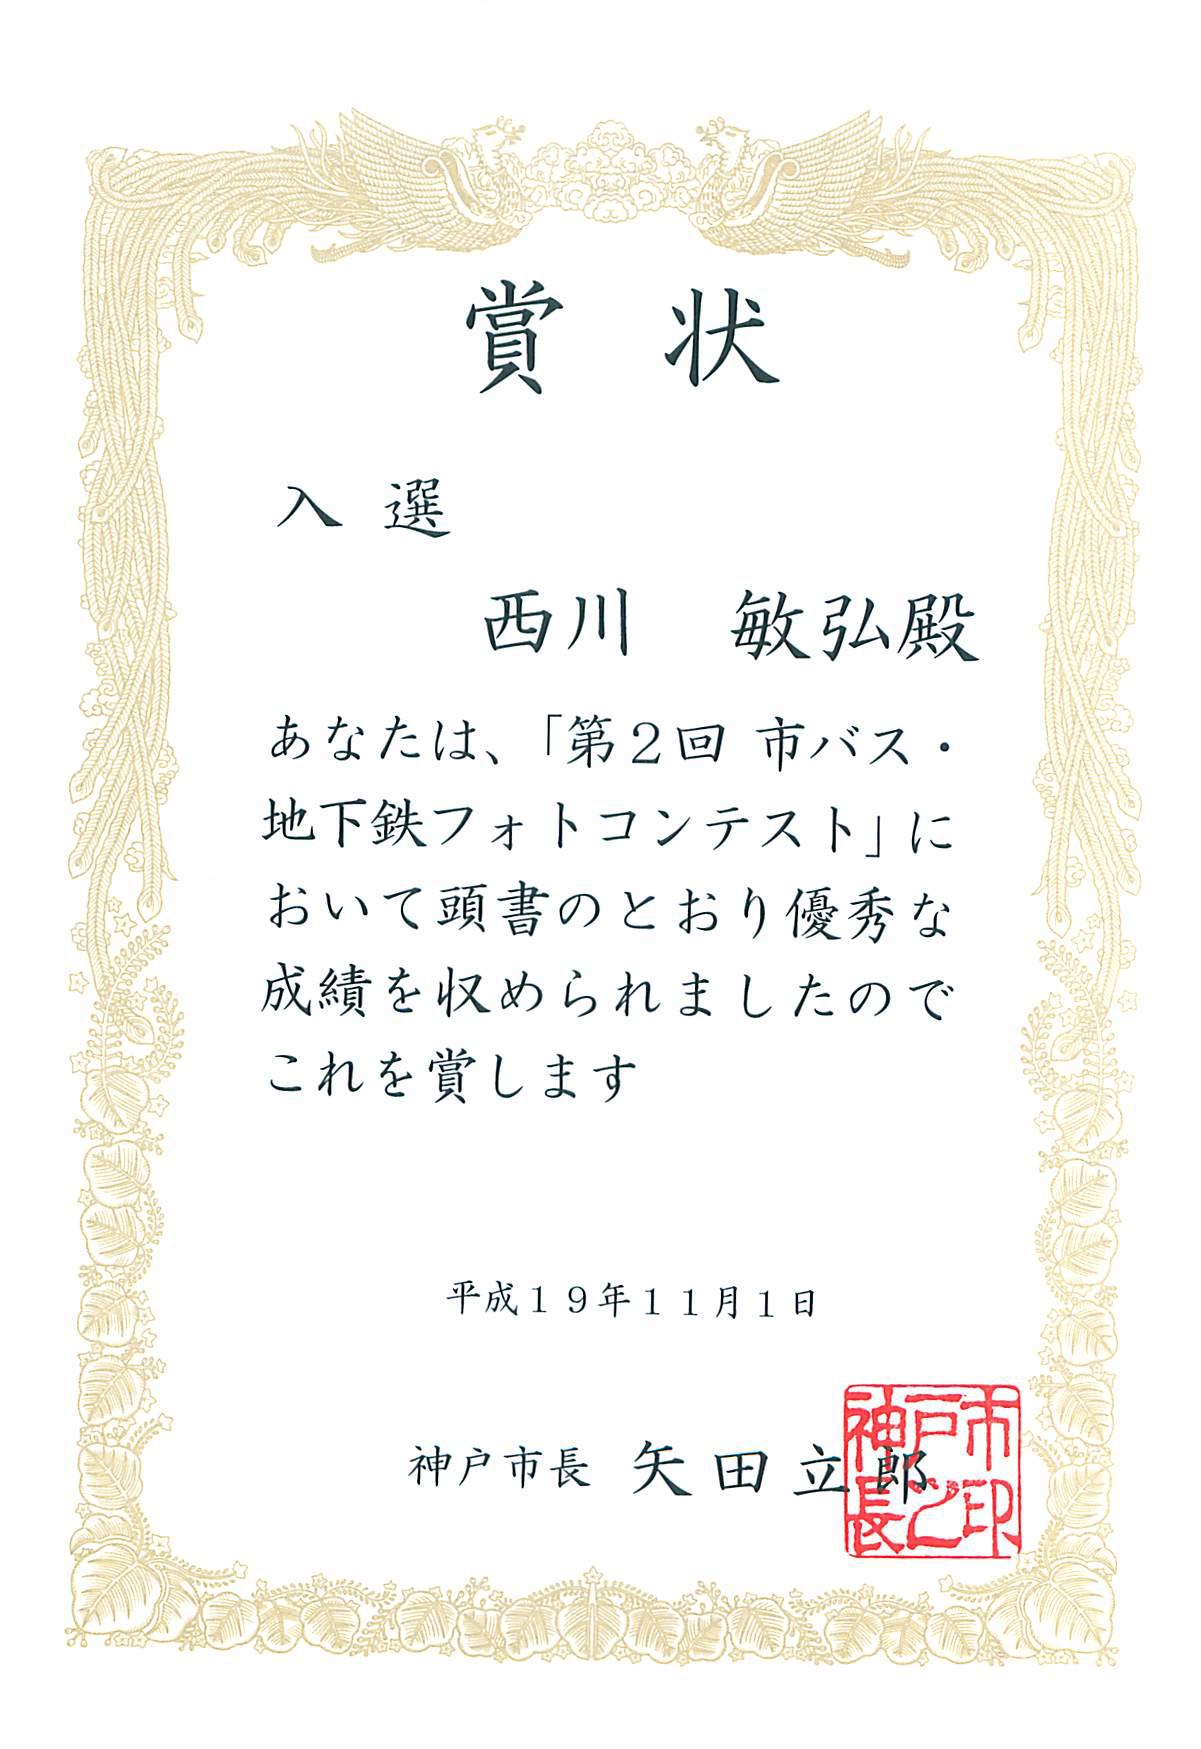 賞状
入選
西川 敏弘殿
あなたは、「第２回 市バス・
地下鉄フォトコンテスト」に
おいて頭書のとおり優秀な
成績を収められましたので
これを賞します
平成１９年１１月１日
神戸市長 矢田立郎
神戸市
長之印